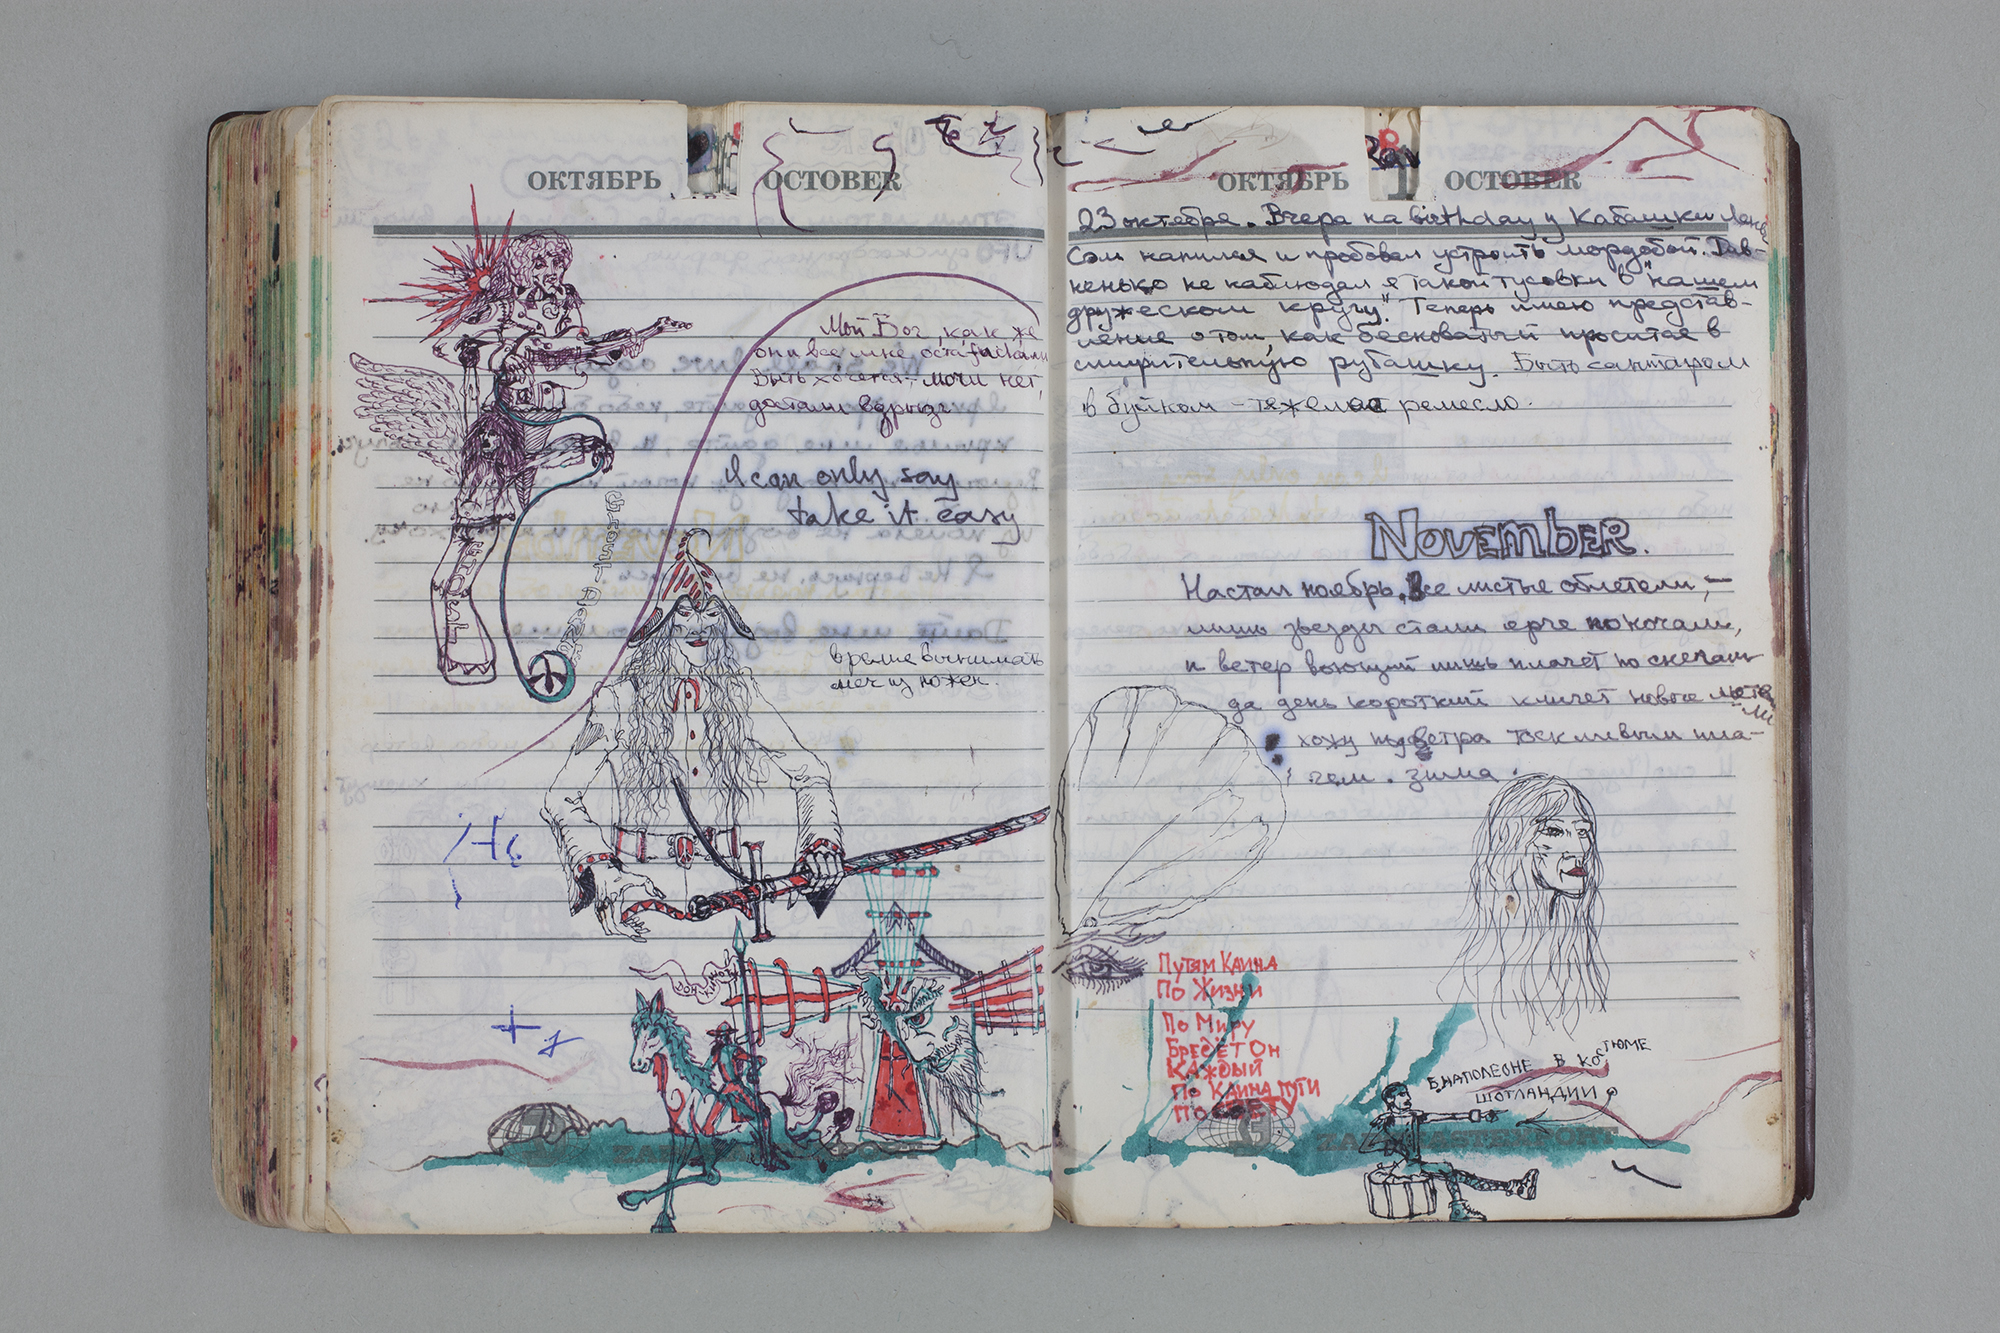 ОКТЯБРЬ OCTOBER
Мой Бог, как же
они все мне оста
Выть хочется – мочи нет,
достали вдрызг
I can only say
take it easy
время вынимать
меч из ножен.
ОКТЯБРЬ 1 OCTOBER
23 октября. Вчера на birthday у Кабашки
Сом напился и пробовал устроить мордобой. Дав-
ненько не наблюдал я такой тусовки в "нашем
дружеском кругу". Теперь имею представ-
ление о том, как бесноватый просится в
смирительную рубашку. Быть санитаром
в буйном – тяжелое ремесло.
NOVEMBER.
Настал ноябрь. Все листья облетели,
лишь звезды стали ярче по ночам,
и ветер воющий лишь плачет по
да день короткий кличет новые метели
хожу ветра тоскливым пла-
чем. зима.
Путям Каина
По Жизни
По Миру
Бредёт Он
Каждый
По Каина пути
По Свету
Б.НАПОЛЕОНЕ В КОСТЮМЕ
ШОТЛАНДИИ